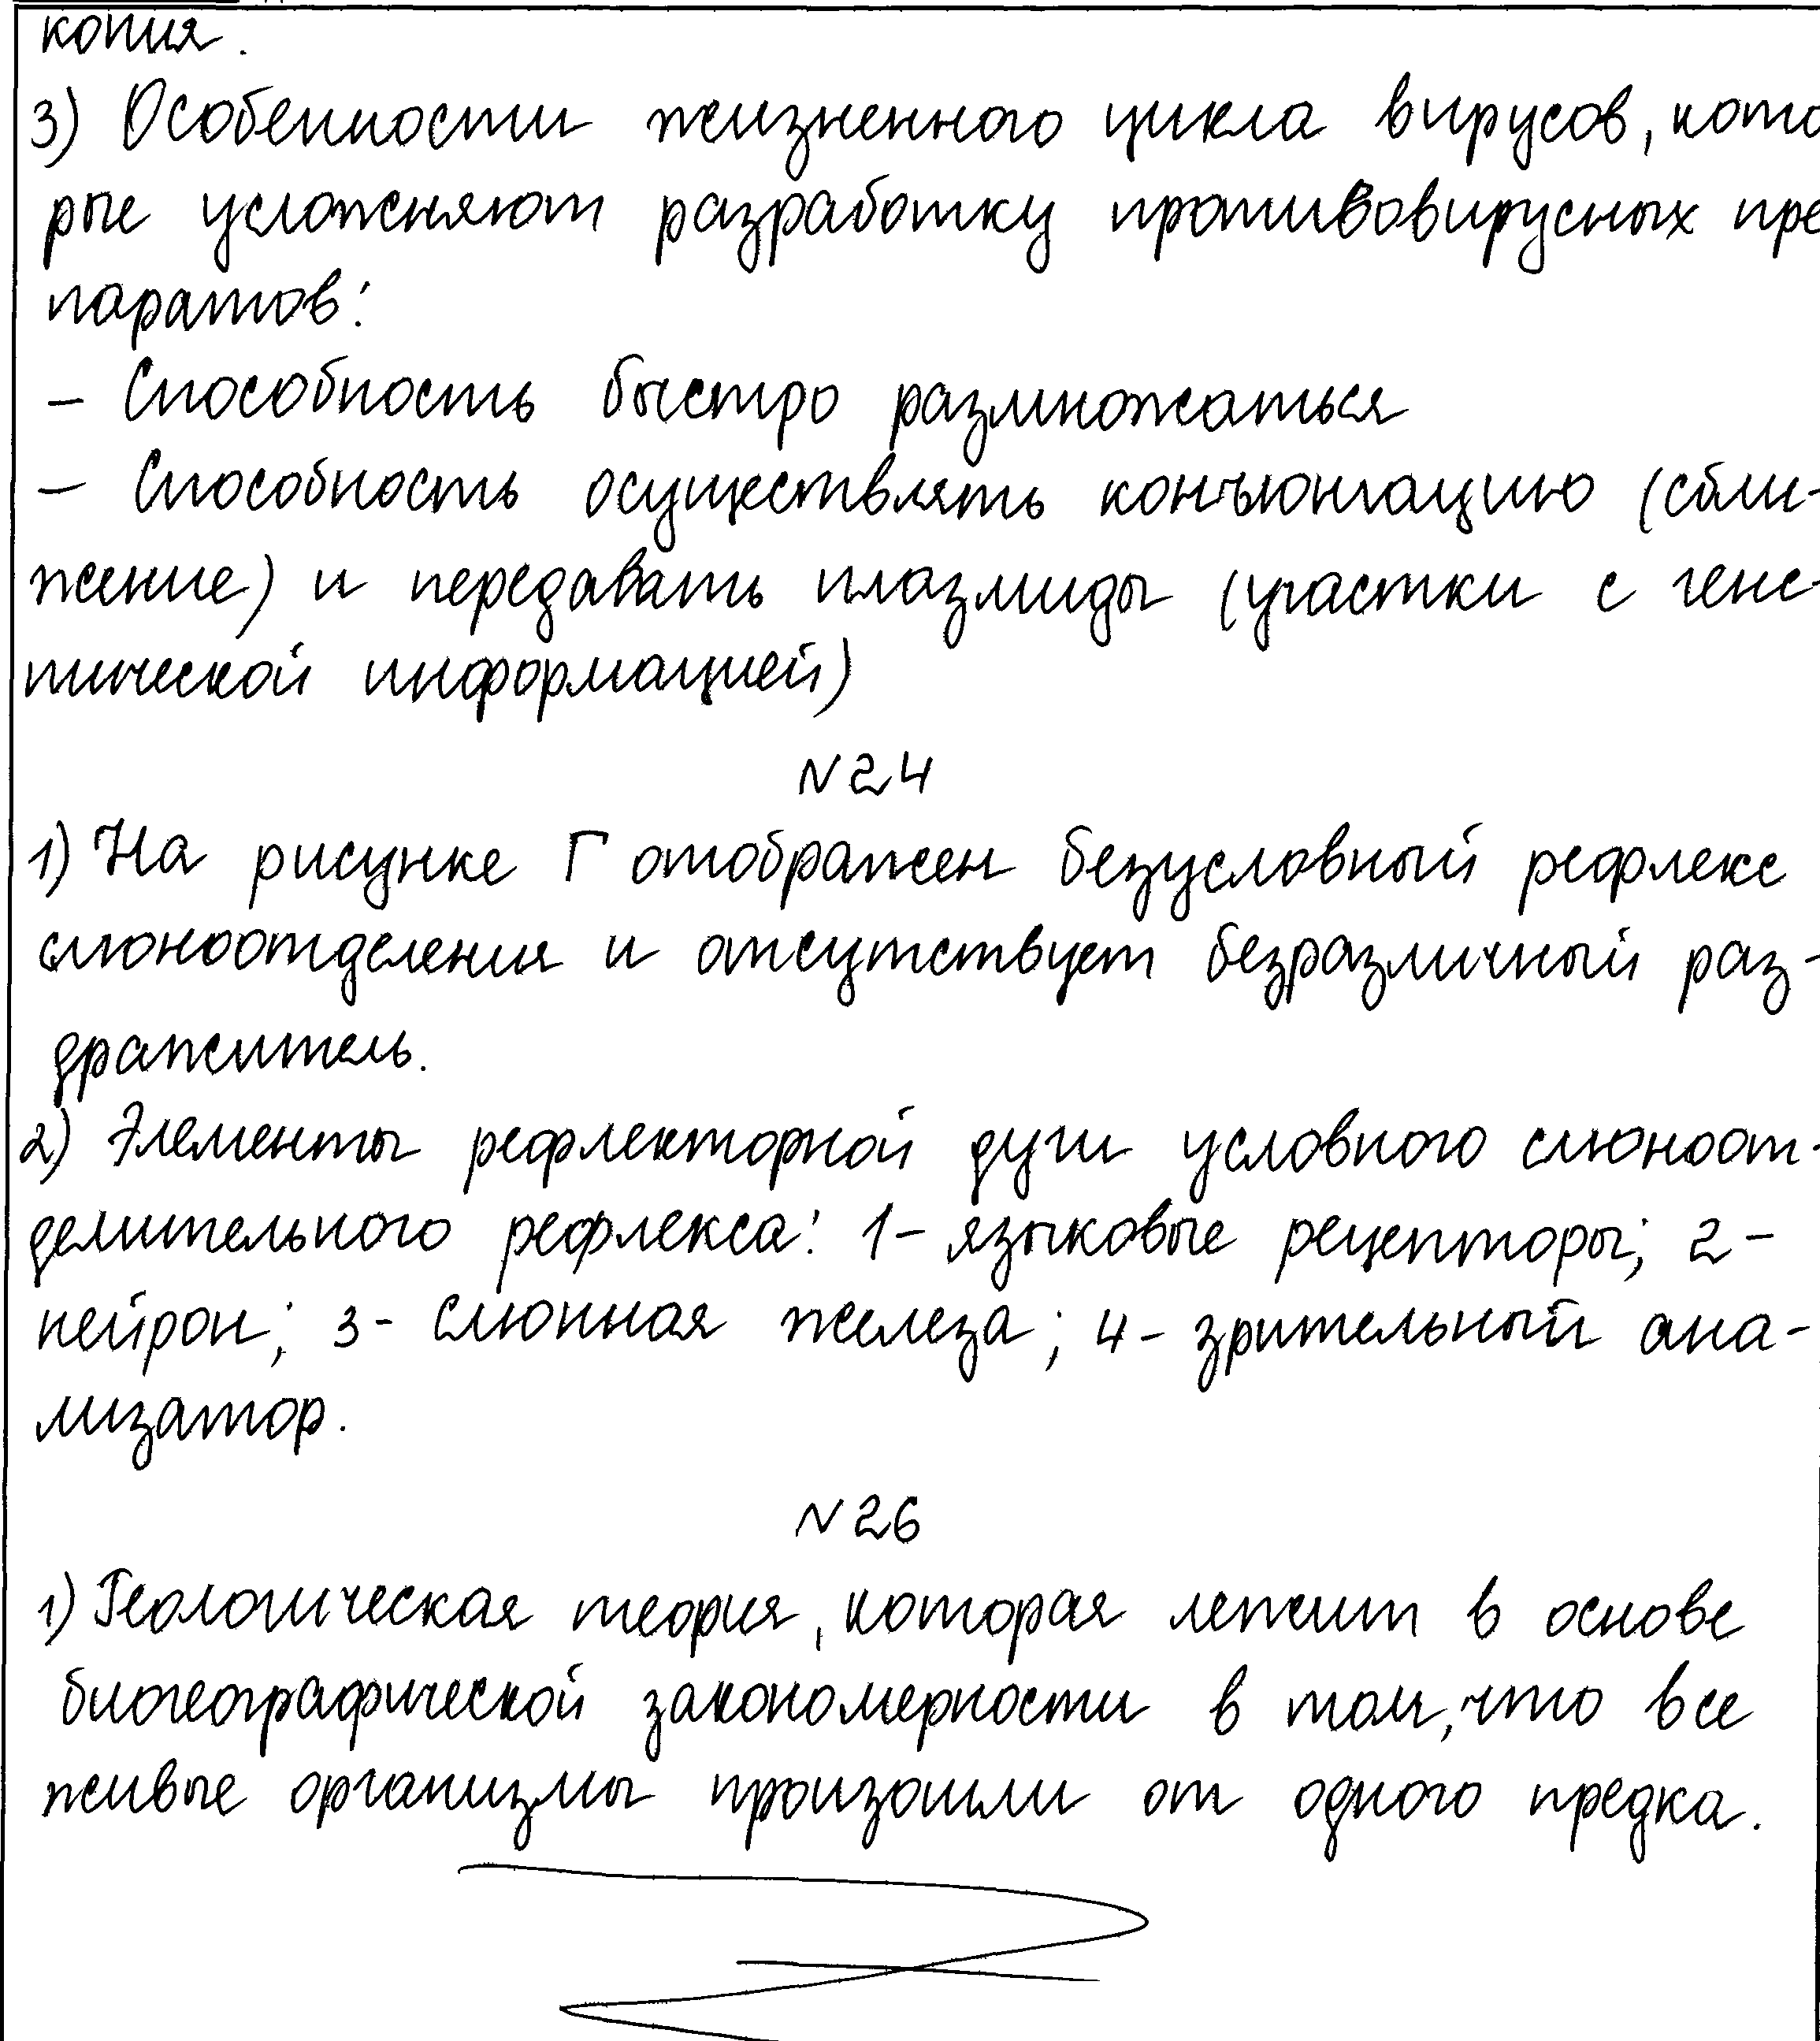 копия.
3) Особенности жизненного цикла вирусов, кото
рые усложняют разработку противовирусных пре
паратов:
- Способность быстро размножаться
- Способность осуществлять конъюнгацию (сбли-
жение) и передавать плазмиды (участки с гене-
тической информацией)
N24
1) На рисунке Г отображен безусловный рефлекс
слюноотделения и отсутствует безразличный раз-
дражитель.
2) Элементы рефлекторной дуги условного слюноот-
делительного рефлекса: 1- языковые рецепторы; 2-
нейрон; 3- слюнная железа; 4- зрительный ана-
лизатор.
N26
1) Геологическая теория, которая лежит в основе
биогеографической закономерности в том, что все
живые организмы произошли от одного предка.